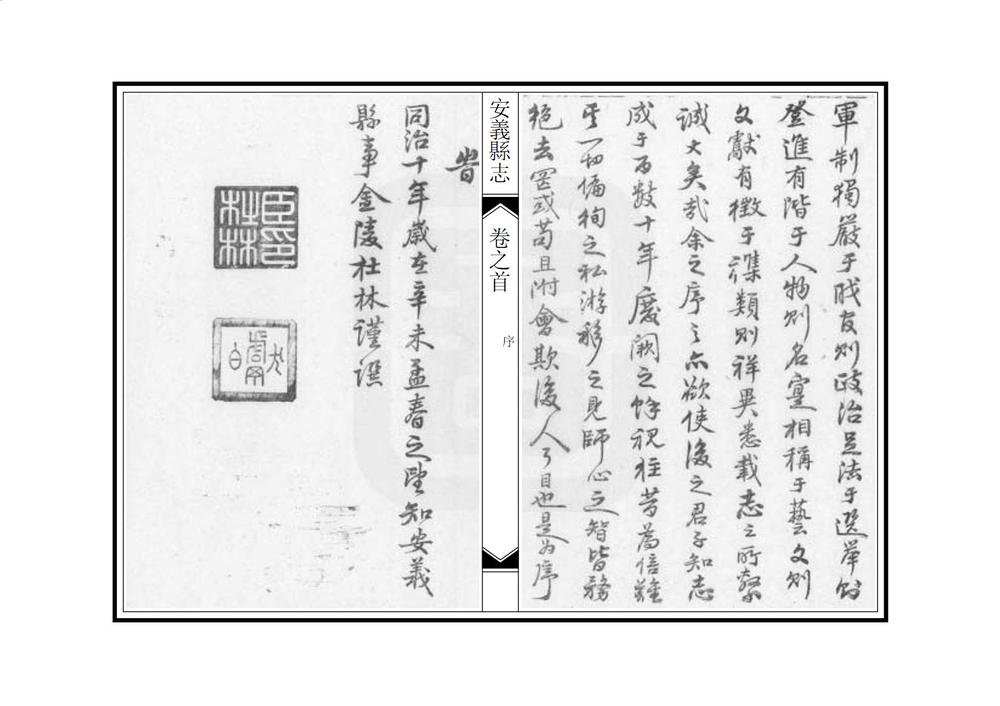 軍制獨嚴于戎官則政治足法于選舉則
登進有階于人物則名實相稱于藝文則
文獻有徵于襍類則祥異悉載志之所繫
誠大矣哉余之序之亦欲使後之君子知志
成于百數十年廢闕之餘視往昔為倍難
一切偏徇之私游移之見師心之智皆務
絶去罔或苟且附會欺後人耳目也是為序
安義縣志
卷之首
序
旹
同治十年歲在辛未孟春之望知安義
縣事金陵杜林謹譔
臣印杜林